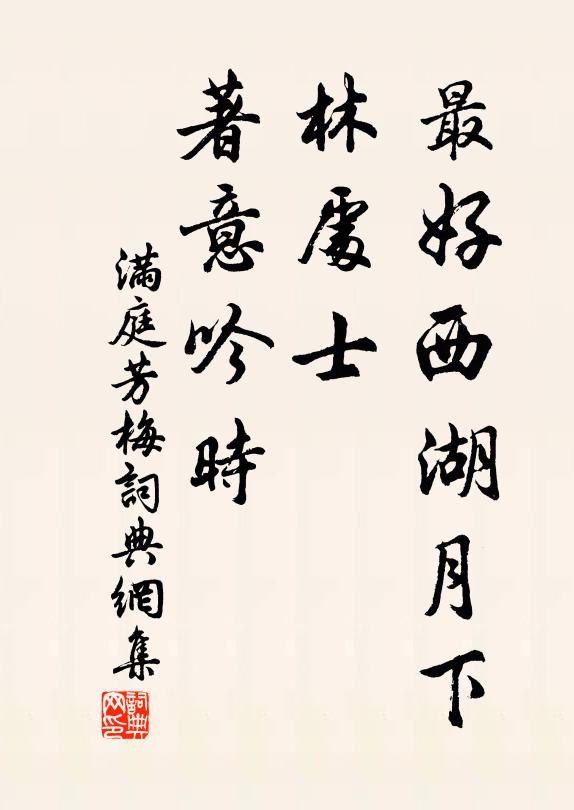 最好西湖月下
林處士
著意吟時
滿庭芳梅詞典網集
詞典网印